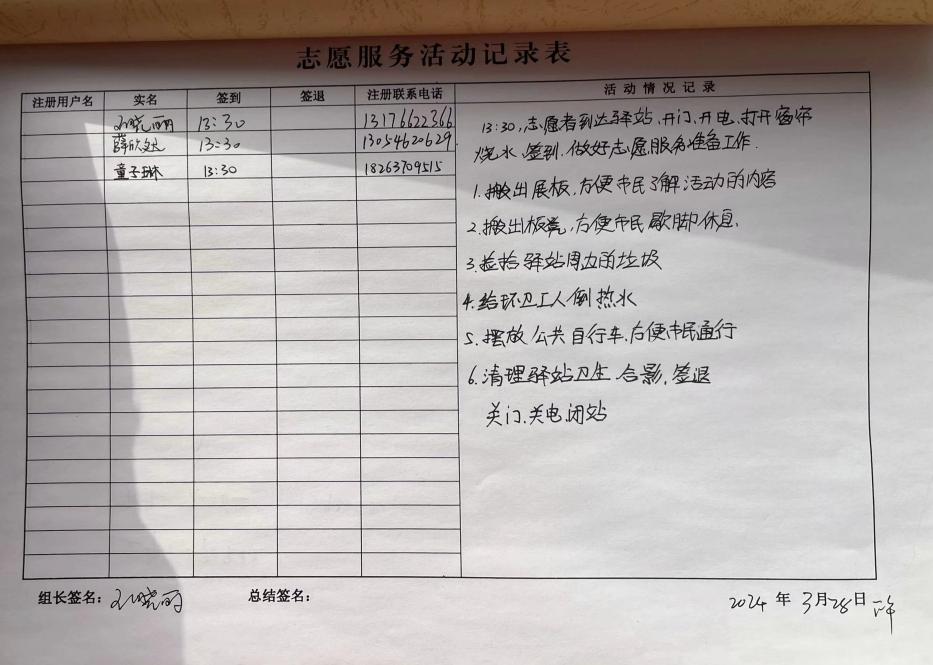 志愿服务活动记录表
注册用户名 实名 签到 签退 注册联系电话 活动情况记录
孙晓丽 13:30 13176622366
薛欣 13:30 13054620629
童子琳 13:30 18263709515
13:30,志愿者到达驿站,开门、开电、打开窗帘
烧水、签到、做好志愿服务准备工作.
1.搬出展板,方便市民了解活动的内容
2.搬出板凳,方便市民歇脚休息.
3.捡拾驿站周边的垃圾
4.给环卫工人倒热水
5.摆放公共自行车,方便市民通行
6.清理驿站卫生、合影,签退
关门、关电、闭站
组长签名: 孙晓丽 总结签名:
2024年3月28日